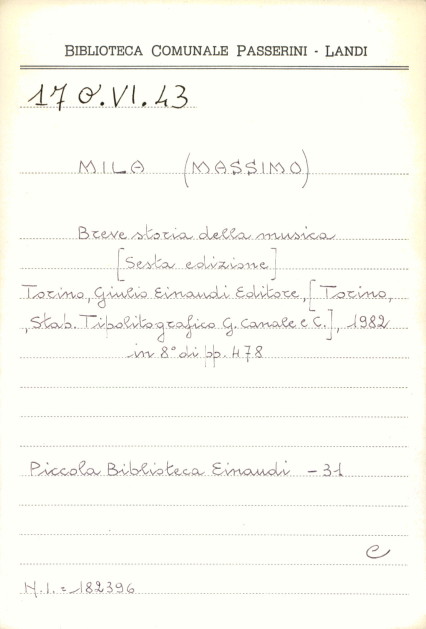 BIBLIOTECA COMUNALE PASSERINI - LANDI
17 O.VI.43
MILA (MASSIMO)
Breve storia della musica
[Sesta edizione]
Torino, Giulio Einaudi Editore, [Torino,
, Stab. Tipolitografico G. Canale e C.], 1982
in 8° di pp. 478
Piccola Biblioteca Einaudi - 31
e
N.I. = 182396